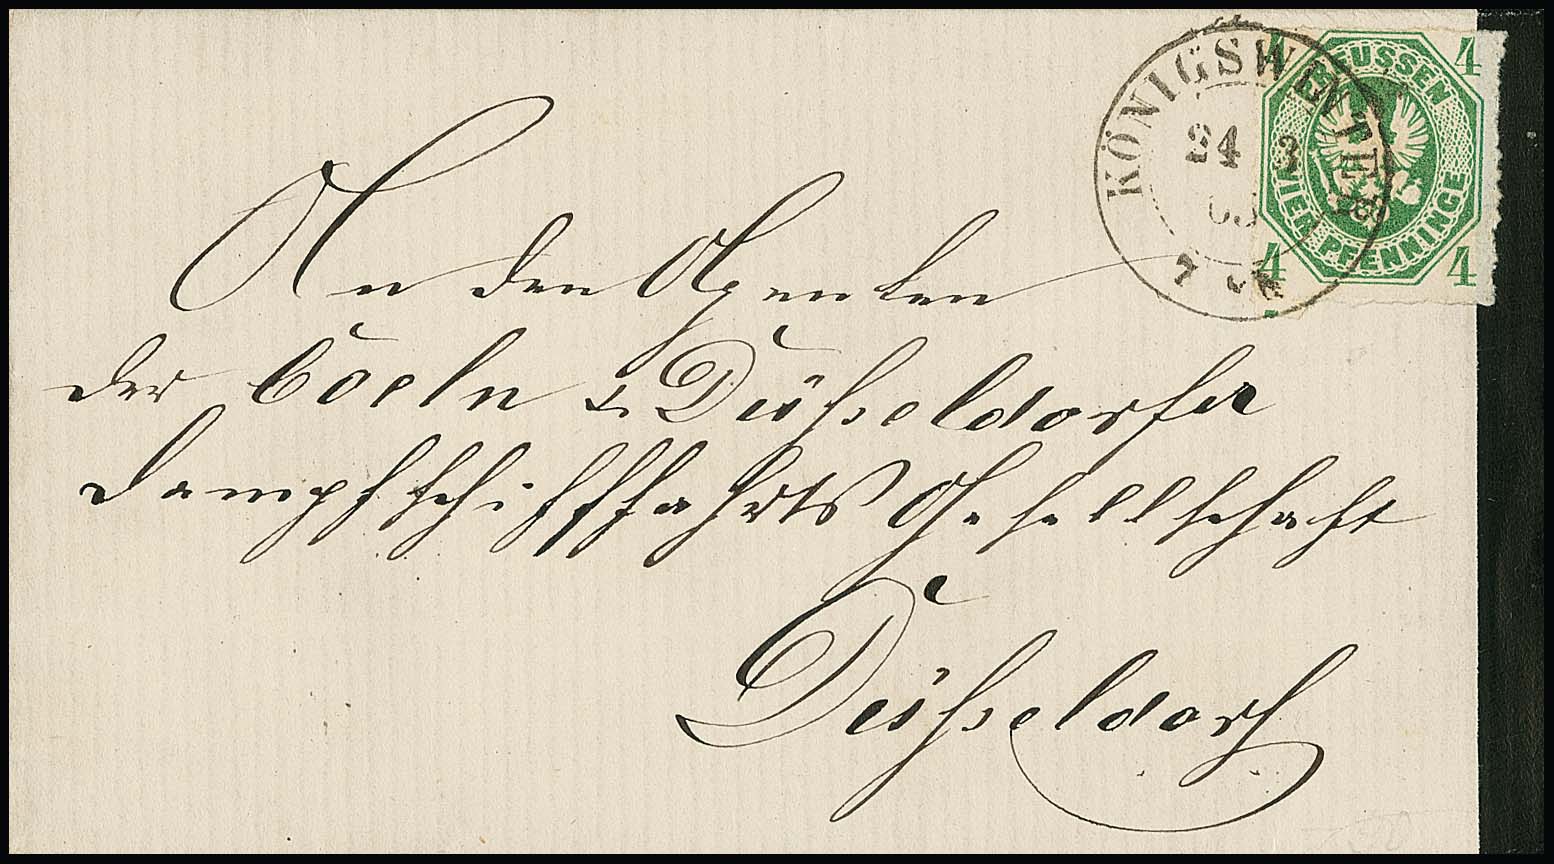 KÖNIGSWINTER
24 3
7
4 4
PREUSSEN
VIER PFENNINGE
4 4
An den Agenten
der Cöeln & Düsseldorfer
Dampfschifffahrts Gesellschaft
Düsseldorf